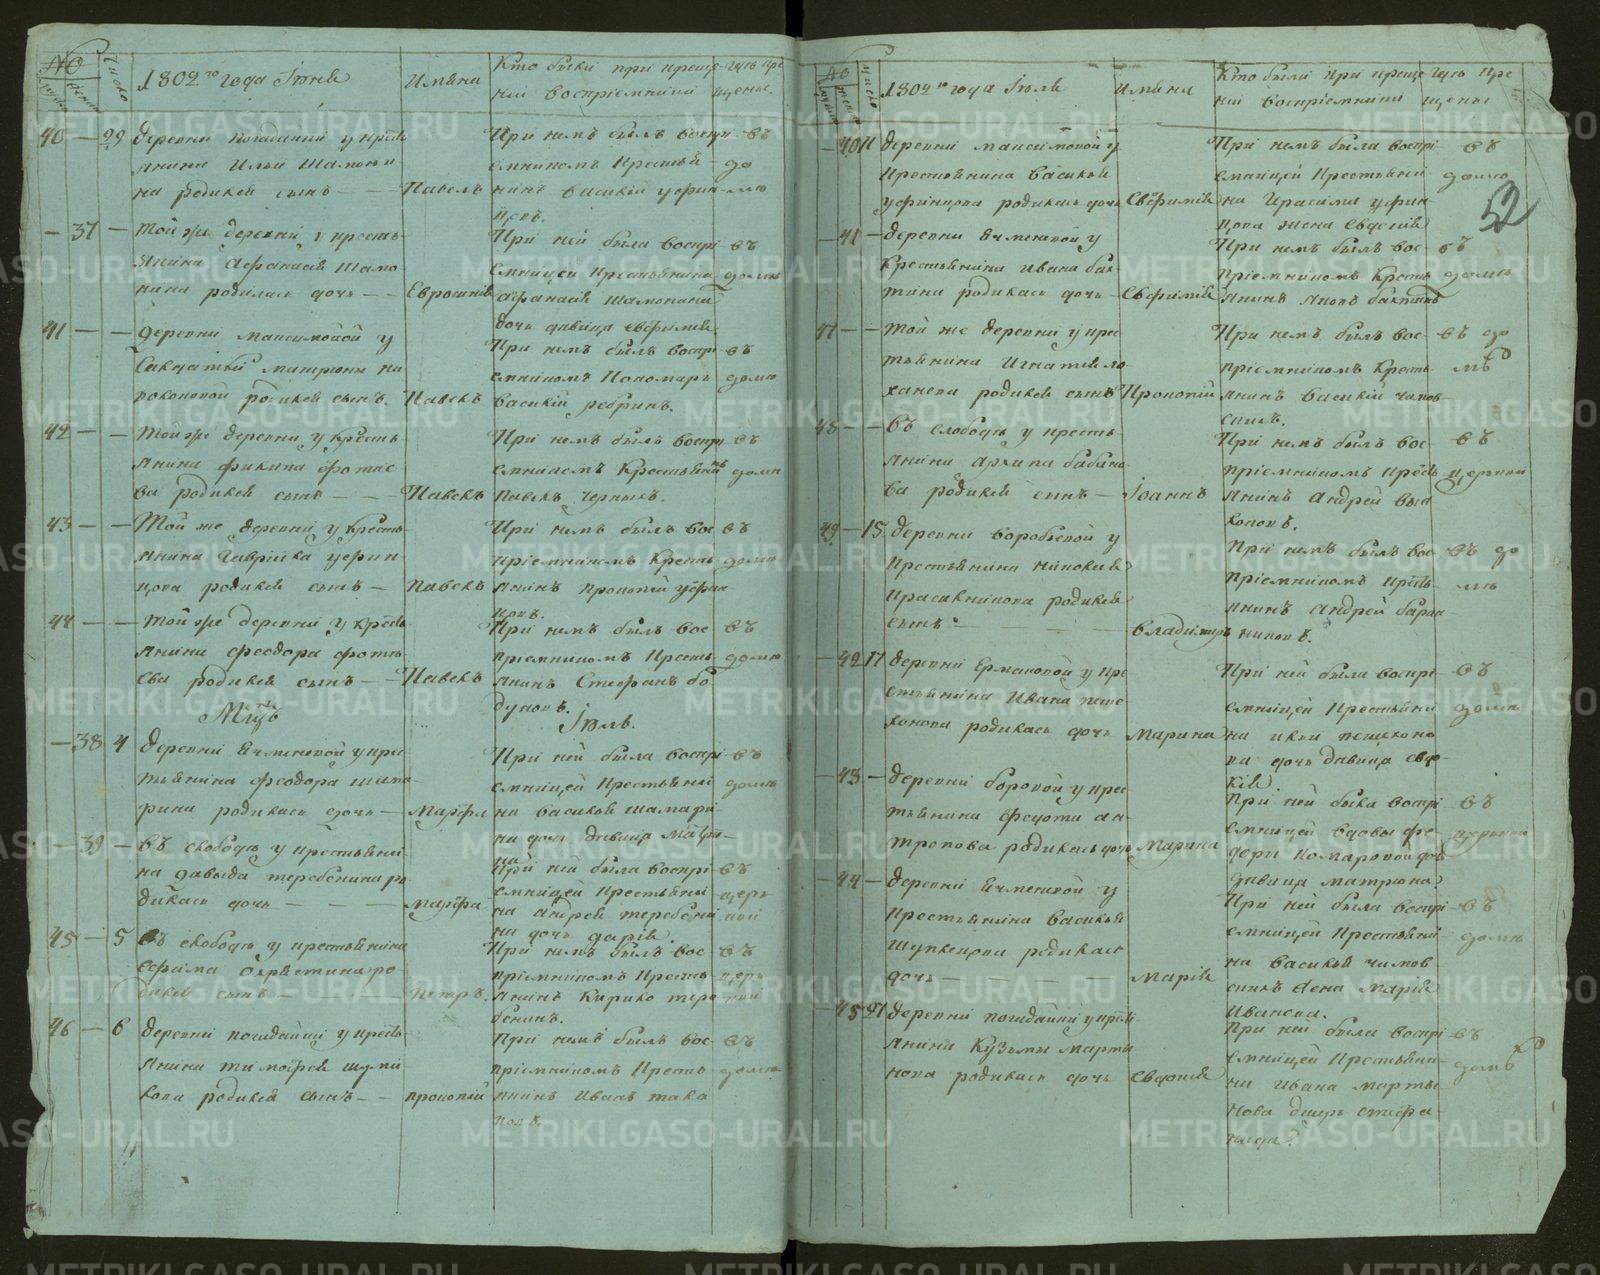 №
число
1802го года Іюня
Имяна
Кто были при креще-
ніи воспріемники
Гдѣ кре
щены.
40 — 29 деревни погадайки у кресть
янина Ильи Шамони
на родился сынъ — — Павелъ
При немъ былъ воспрі
емникомъ Крестья
нинъ Василій уфин
цовъ.
въ
до
мѣ
— 37 — Той же деревни у кресть-
янина Афанасія Шамо
нина родилась дочь — — Евросинія
При ней была воспрі
емницей Крестьянина
Афанасія Шамонина
дочь дивица Евфимія
въ
домѣ
41 — — деревни максимовой у
солдатки матроны на
родился сынъ. Павелъ
При немъ былъ воспрі
емникомъ Пономарь
Василій ребринъ.
въ
домѣ
42 — — Той же деревни у кресть-
янина филипа фотие
ва родился сынъ — — Павелъ
При немъ былъ воспрі
емникомъ Крестьянинъ
Павелъ черныхъ.
въ
домѣ
43 — — Той же деревни у кресть
янина Гаврійла уфин
цова родился сынъ — Павелъ
При немъ былъ вос
пріемникомъ Кресть
янинъ Прокопій уфин
цовъ.
въ
домѣ
44 — — Той же деревни у кресть
янина феодора фоть
ева родился сынъ — — Павелъ
При немъ былъ вос
пріемникомъ Кресть
янинъ Стефанъ бо
дуновъ.
въ
домѣ
Мцъ Іюль.
— 38 4 деревни Ячменевой у кре
тьянина феодора шама
рина родилась дочь — Марфа
При ней была воспрі
емницей Крестьяни
на Василья шамари
на дочь дивица Матро
на
въ
домѣ
— 39 — Въ слободѣ у крестьяни
на давыда теребенина ро
дилась дочь — — — Марфа
При ней была воспрі
емницей Крестьяни
на Андрея теребени
на дочь дарія
въ
церк
вѣ
45 — 5 Въ слободѣ у крестьянина
дился сынъ — — — Петръ.
При немъ былъ вос
пріемникомъ Кресть
янинъ Кирило тере
бенинъ.
въ
церк
вѣ
46 — 6 деревни погадайки у кресть
янина тимофея шуми
лова родился сынъ — — прокопій
При немъ былъ вос
пріемникомъ Кресть
янинъ Иванъ
въ
домѣ
№
число
1802го года Іюля
Имяна
Кто были при креще
ніи воспріемники
Гдѣ кре
щены
52
— 40 11 деревни максимовой у
Крестьянина Василья
уфинцова родилась дочь Евфимія
При немъ была воспрі
емницей Крестьяни
на Герасима уфин
цова жена Евдокія
въ
домѣ
— 41 — деревни Ячменевой у
Крестьянина Ивана бак
тина родилась дочь Евфимія
При немъ былъ вос
пріемникомъ Кресть
янинъ Яковъ бактинъ
въ
домѣ
47 — — той же деревни у кре
тьянина Игнатія ло
ханева родился сынъ Прокопій
При немъ былъ вос
пріемникомъ Кресть
янинъ Василій чамов
скихъ.
въ до
мѣ
48 — — Въ слободѣ у кресть
янина Архипа бабино
ва родился сынъ — Іоаннъ
При немъ былъ вос
пріемникомъ Кресть
янинъ Андрей вья
въ
церькви
49 — 15 деревни воробьевой у
Крестьянина николая
Красильникова родился
сынъ — — — Владимиръ
При немъ былъ вос
пріемникомъ Кресть
янинъ Андрей баран
никовъ.
въ до
мѣ
— 42 17 деревни Ермаковой у кре
стьянина Ивана пеше
хонова родилась дочь Марина
При ней была воспрі
емницей Крестьяни
на ильи пешехоно
ва дочь дивица Евдо
кія.
въ
домѣ
— 43 — деревни боровой у кре
тьянина федота ан
тропова родилась дочь Марина
При ней была воспрі
емницей вдовы фе
доры Комаровой дочь
дивица матрона
въ
церькви
— 44 — деревни Ячменевой у
Крестьянина Василья
родилась
дочь — — Марія
При ней была воспрі
емницей Крестьяни
на Василья чамов
скихъ жена Марія
Иванова.
въ
домѣ
— 45 21 деревни погадайки у кресть
янина Кузьмы марты
нова родилась дочь Евдокія
При ней была воспрі
емницей Крестьяни
на Ивана марты
нова дщерь стефа
нида
въ
домѣ
METRIKI.GASO-URAL.RU